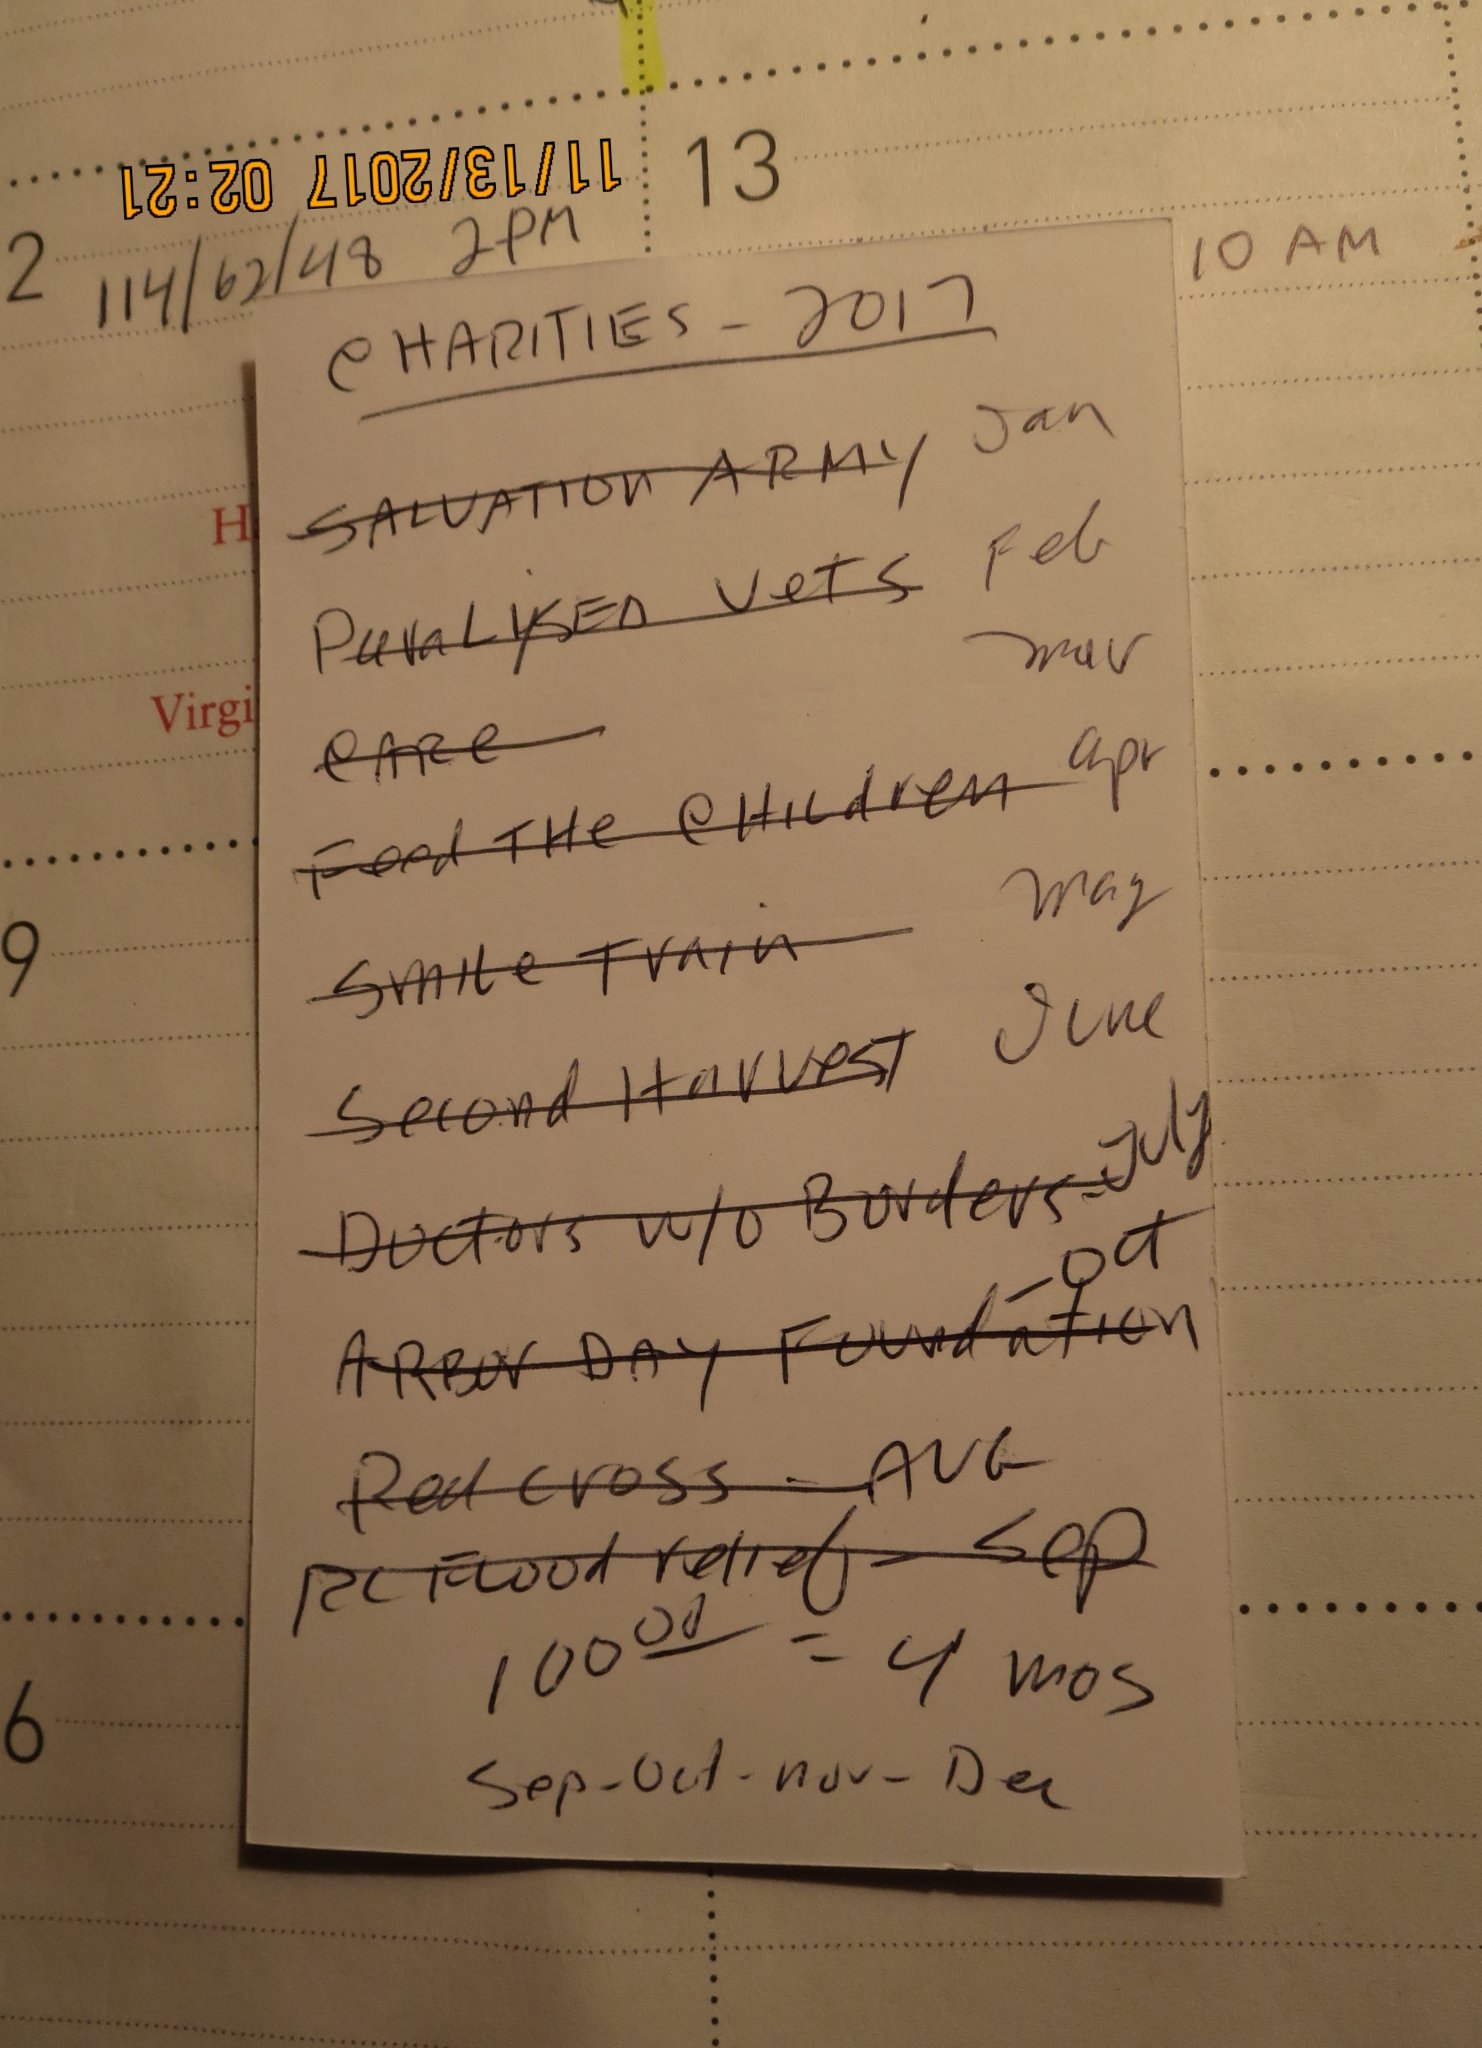 11/13/2017 02:21
13
2
114/62/48 2PM
10 AM
CHARITIES - 2017
SALVATION ARMY Jan
H
ParaLYSED VeTS Feb
mar
Virgi
CARe
Feed THe CHILdren apr
May
9
SMILe Train
Second Harvest June
Doctors w/o Borders - July
- Oct
ARBOr DAY Foundation
Red cross - AUG
RC FLOOD relief - Sep
100 00 = 4 mos
6
Sep - Oct - nov - Dec